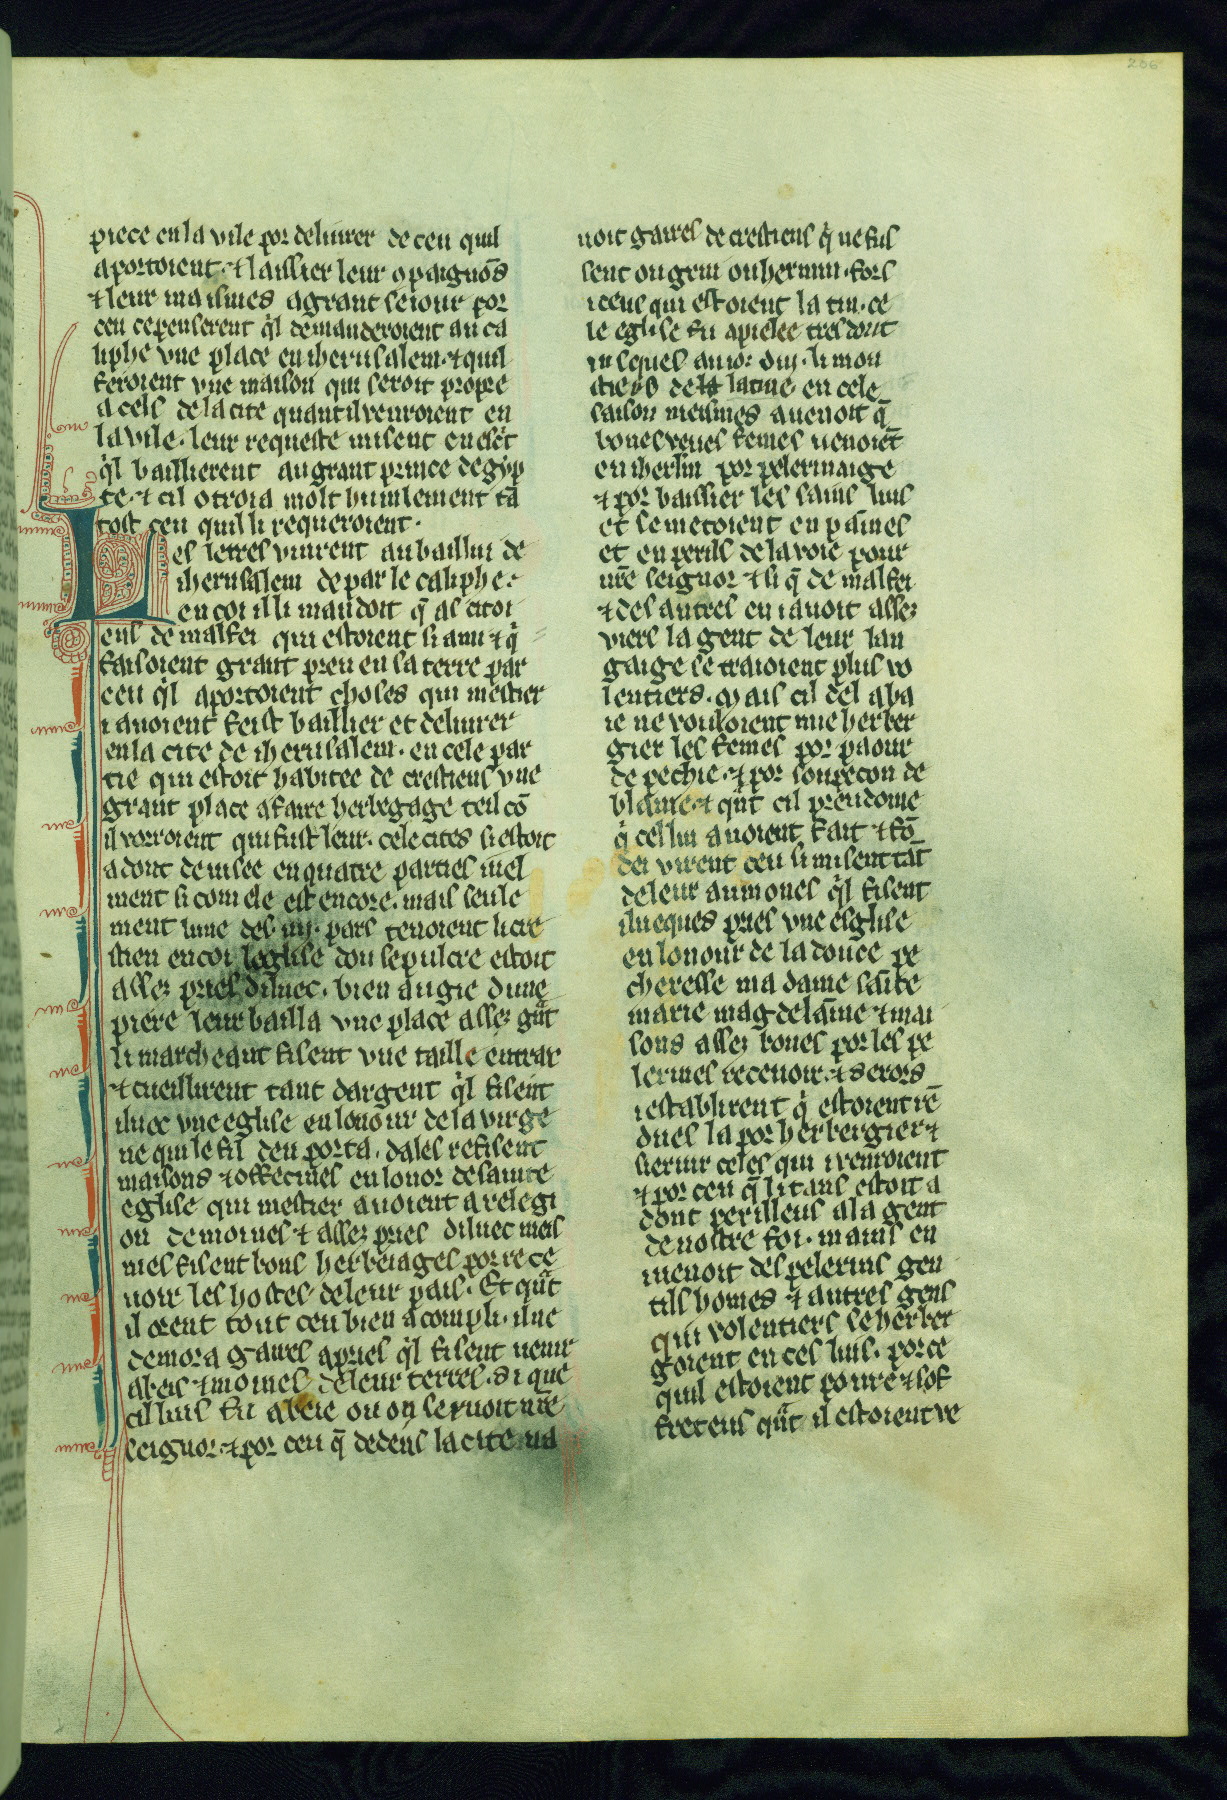 206
piece en la vile por deliurer de ceu quil
aportoient ⁊ laissier leur ɔpaignōs
⁊ leur maismes a grant seiour por
ceu ce penserent ql demanderoient au ca
liphe vne place en iherusalem ⁊ quil
feroient vne maison qui seroit propre
a cels de la cite quant il venroient en
la vile. leur requeste misent en escͥt
ql baillierent au grant prince degyp
te. ⁊ cil otroia molt humlement tā
tost ceu quil li requeroient.
Les letres vinrent au baillui de
iherusalem de par le caliphe.
en coi il li mandoit q̄ as citoi
ens de malfei qui estoient si ami ⁊ qͥ
faisoient grant preu en sa terre par
ceu ql aportoient choses qui mestier
i auoient feist baillier et deliurer
en la cite de iherusalem. en cele par
tie qui estoit habitee de crestiens vne
grant place a faire herbegage teil cō
il vorroient qui fust leur. cele cites si estoit
adont deuisee en quatre parties iuel
ment si com ele est encore. mais seule
ment lune des .iiij. pars tenoient li cre
stien en coi leglise dou sepulcre estoit
assez pries diluec. bien au gie dune
piere leur bailla vne place assez gͣnt
li marcheant fisent vne taille entraz
⁊ cueillirent tant dargent ql fisent
iluec vne eglise en lonour de la virge
ne qui le fil deu porta. dales refisent
maisons ⁊ offecines en lonor de sainte
eglise qui mestier auoient a relegi
on de moines ⁊ assez pries diluec meis
mes fisent bons herberages por rece
uoir les hostes de leur pais. Et qͣnt
il orent tout ceu bien acompli. il ne
demora gaires apries ql fisent uenir
abeis ⁊ moines de leur terres. si que
cil luis fu abeie ou on seruoit nr̄e
seignor. ⁊ por ceu q̄ dedens la cite na
uoit gaires de crestiens qͥ ne fus
sent ou grin ou hermin. fors
iceus qui estoient latin. ce
le eglise fu apielee tres dont
iusques au ior dui. li mon
stiers de la latine en cele
saison meismes auenoit q̄
bones veues femes uenoiēt
en iherlm por pelerinaige
⁊ por baissier les sains luis
et se metoient en painnes
et en perils de la voie pour
nr̄e seignor ⁊ si q̄ de malfei
⁊ des autres en i auoit assez
viers la gent de leur lan
gaige se traioient plus vo
lentiers. Mais cil del aba
ie ne vouloient mie herber
gier les femes por paour
de pechie. ⁊ por soupecon de
blame ⁊ qͣnt cil preudome
qͥ cel liu auoient fait ⁊ fō
dei virent ceu si misent tāt
de leur aumones ql fisent
ilueques pries vne esglise
en lonour de la douce pe
cheresse ma dame saīte
marie magdelaine ⁊ mai
sons assez bones por les pe
lerines receuoir. ⁊ serors
i establirent qͥ estoient rē
dues la por herbergier ⁊
sieruir celes qui i venroient
⁊ por ceu q̄ li tans estoit a
dont perilleus a la gent
de nostre foi. mains en
uenoit des pelerins gen
tils homes ⁊ autres gens
qui volentiers se herber
goient en ces luis. por ce
quil estoient poure ⁊ sof
freteus qͣnt il estoient ve